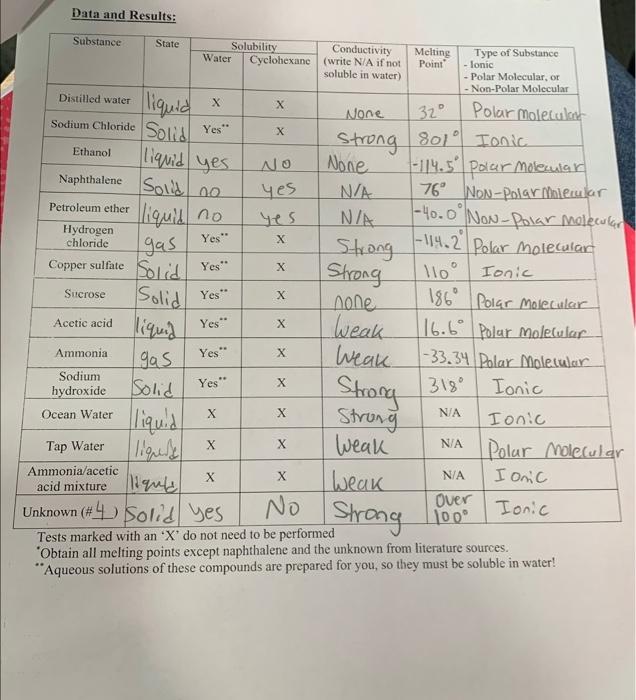 Data and Results:
Substance State Solubility Conductivity (write N/A if not soluble in water) Melting Point* Type of Substance - Ionic - Polar Molecular, or - Non-Polar Molecular
Water Cyclohexane
Distilled water liquid X X None 32° Polar molecular
Sodium Chloride Solid Yes** X Strong 801° Ionic
Ethanol liquid yes No None -114.5° Polar Molecular
Naphthalene Solid no yes N/A 76° Non-Polar Molecular
Petroleum ether liquid no yes N/A -40.0° Non-Polar Molecular
Hydrogen chloride gas Yes** X Strong -114.2° Polar Molecular
Copper sulfate Solid Yes** X Strong 110° Ionic
Sucrose Solid Yes** X none 186° Polar Molecular
Acetic acid liquid Yes** X Weak 16.6° Polar Molecular
Ammonia gas Yes** X Weak -33.34 Polar Molecular
Sodium hydroxide Solid Yes** X Strong 318° Ionic
Ocean Water liquid X X Strong N/A Ionic
Tap Water liquid X X Weak N/A Polar Molecular
Ammonia/acetic acid mixture liquid X X Weak N/A Ionic
Unknown (#4) Solid yes No Strong Over 100° Ionic
Tests marked with an 'X' do not need to be performed
*Obtain all melting points except naphthalene and the unknown from literature sources.
**Aqueous solutions of these compounds are prepared for you, so they must be soluble in water!